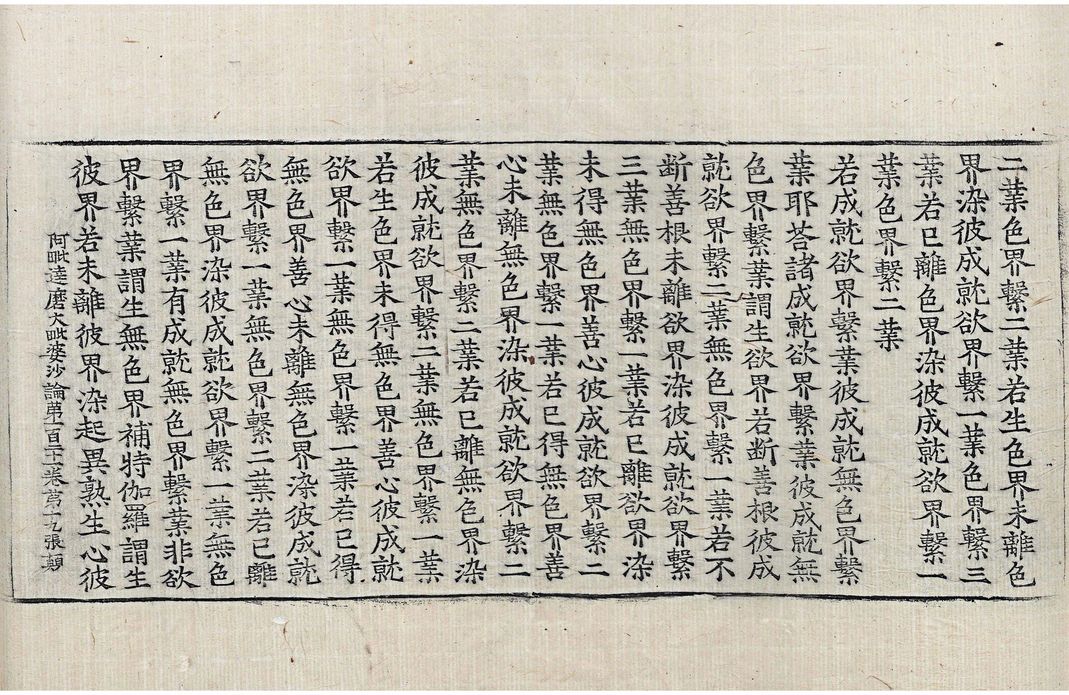 二業色界繫二業若生色界未離色
界染彼成就欲界繫一業色界繫三
業若已離色界染彼成就欲界繫一
業色界繫二業
若成就欲界繫業彼成就無色界繫
業耶荅諸成就欲界繫業彼成就無
色界繫業謂生欲界若断善根彼成
就欲界繫二業無色界繫一業若不
断善根未離欲界染彼成就欲界繫
三業無色界繫一業若已離欲界染
未得無色界善心彼成就欲界繫二
業無色界繫一業若已得無色界善
心未離無色界染彼成就欲界繫二
業無色界繫二業若已離無色界染
彼成就欲界繫二業無色界繫一業
若生色界未得無色界善心彼成就
欲界繫一業無色界繫一業若已得
無色界善心未離無色界染彼成就
欲界繫一業無色界繫二業若已離
無色界染彼成就欲界繫一業無色
界繫一業有成就無色界繫業非欲
界繫業謂生無色界補特伽羅謂生
彼界若未離彼界染起異熟生心彼
阿毗達磨大毗婆沙論第一百十八卷 第九張 顛